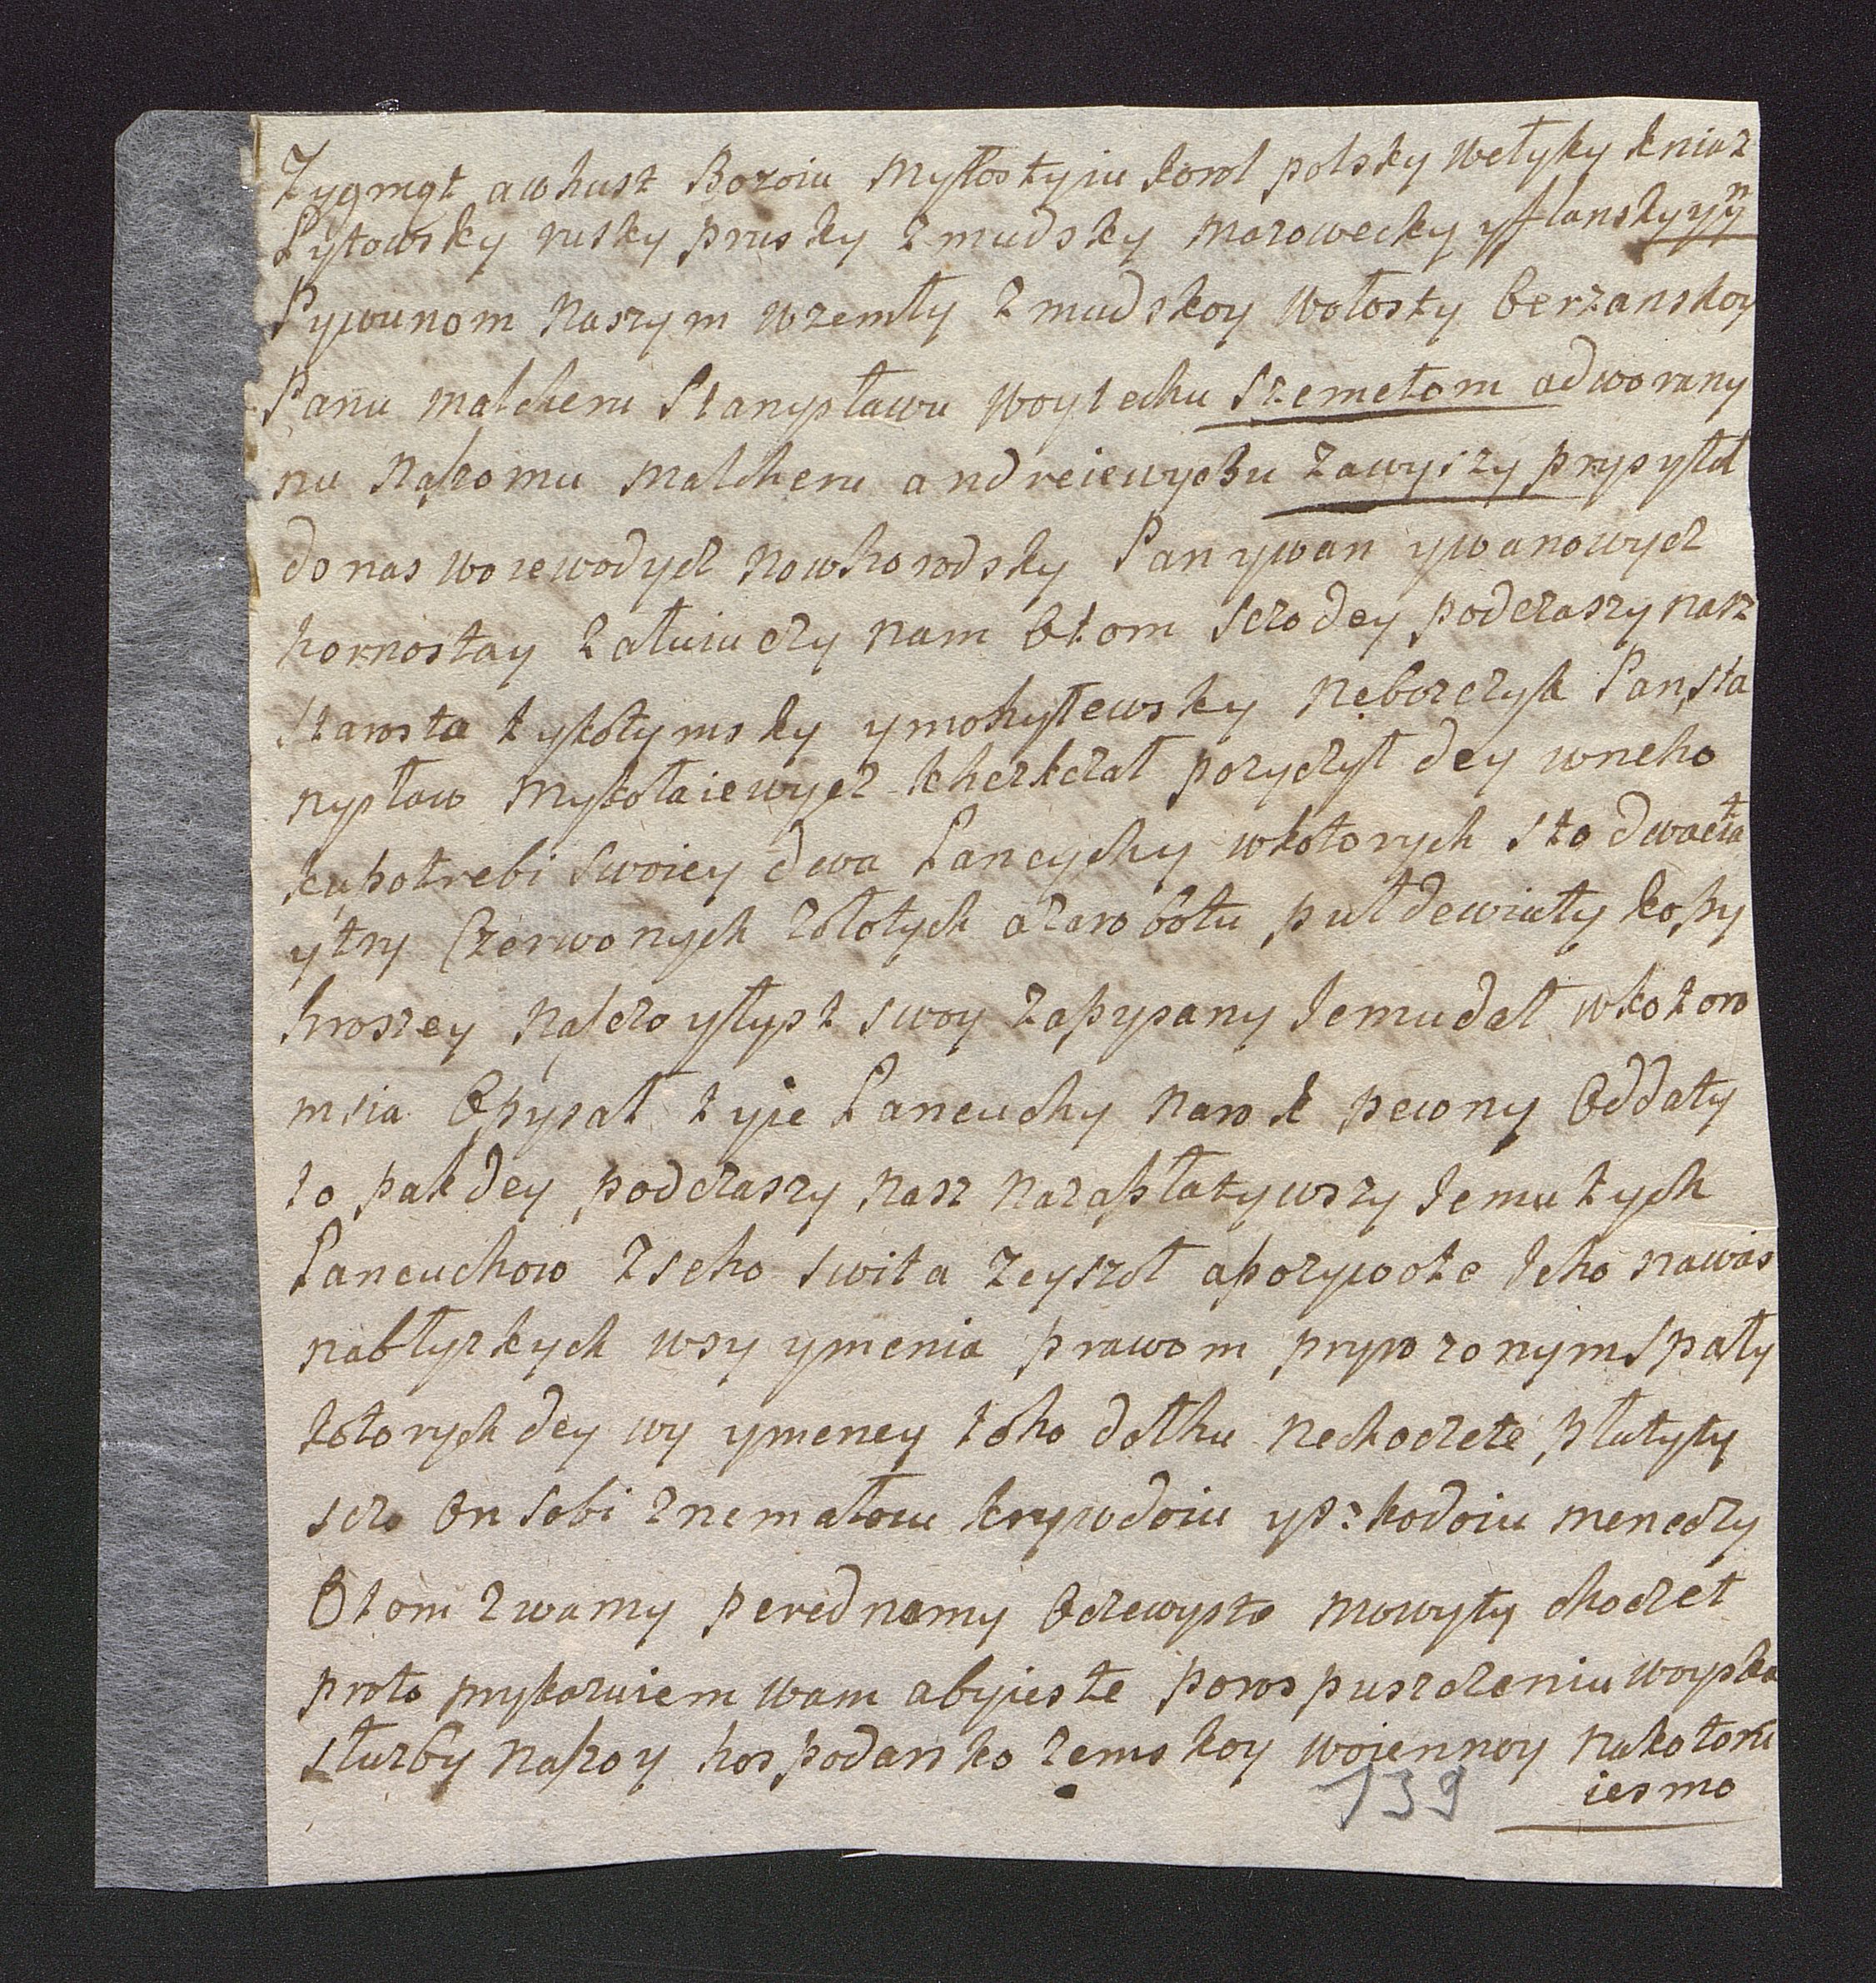 Zygmgt awhust Bozoiu Myłostyiu korol polsky wełyky kniaz
Łytowsky rusky prusky zmudsky mazowecky yflansky yyn
Tywunom naszym wzemły zmudskoy wołosty berzanskoy
Panu malcheru Stanysławu woytechu Szemetom adworany
nu naszomu malcheru andreiewyczu zawyszy prysyłał
donas woiewodycz nowhorodsky Pan ywan ywanowycz
hornostay załuiuczy nam Otom sczodey podczaszy nasz
starosta tykotymsky ymohylewsky neborczyk Pan Sta
nysław Mykołaiewycz kherkczał pozyczył dey wneho
kupotrebi swoiey dwa Łancuchy wkotorych sto dwaćta
ytry Czerwonych zołotych azarobotu puldewiaty kopy
hroszey nasczo ylyst swoy zapysany Iemudał wkotoro
msia Opysał tyie Łancuchy narok pewny Oddaty
to pakdey podczaszy nasz nazapłatywszy Iemu tych
Łancuchow zseho swita zeyszoł apozywote Ieho nawas
nabłyzkych wsy ymenia prawom pryrozonym spały
kotorych dey wy ymeney toho dołhu nechoczete płatyty
sczo On sobi znemałoiu krywdoiu yszkodoiu meneczy
Otom zwamy perednamy Oczewysto mowyty choczet
proto prykazuiem wam abyieste porospuszczeniu woyska
słuzby naszoy hospodarsko zemskoy woiennoy nakotoru
iesmo
139